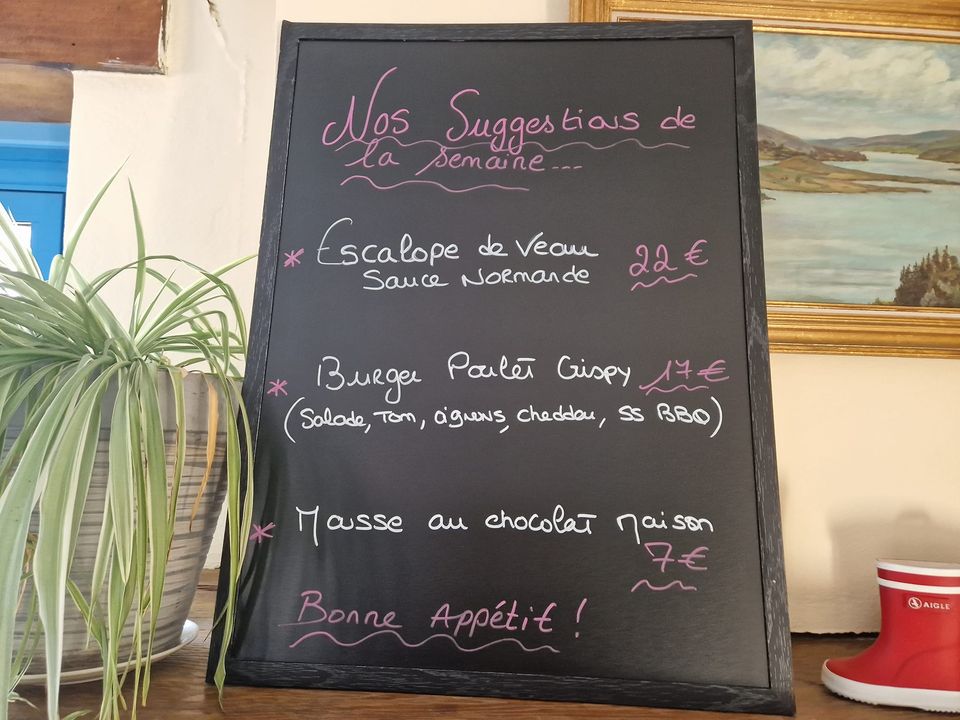 Nos Suggestions de
la semaine...
* Escalope de Veau 22 €
Sauce Normande
* Burger Poulet Crispy 17 €
(Salade, Tom, oignons, cheddar, ss BBQ)
* Mousse au chocolat Maison
7 €
Bonne Appétit !
AIGLE